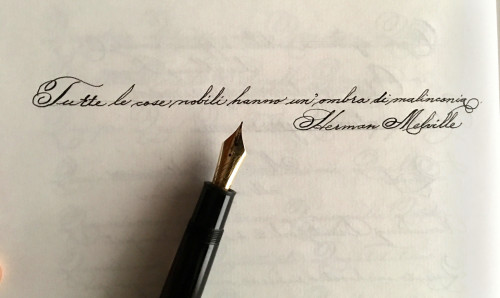 Tutte le cose nobili hanno un'ombra di malinconia
Herman Melville